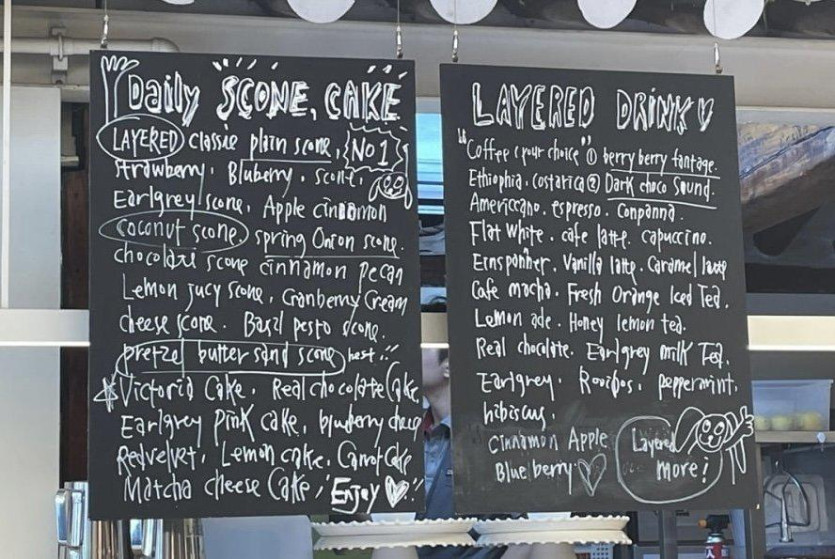 Daily SCONE, CAKE
LAYERED classic plain scone. No 1
strawberry. Bluberry. scone.
Earlgrey scone, Apple cinnamon
coconut scone. spring Onion scone.
chocolate scone cinnamon pecan
Lemon jucy scone. Cranberry Cream
cheese scone. Basil pesto scone.
pretzel butter sand scone best!!
Victoria Cake, Real chocolate Cake,
Earlgrey pink cake, blueberry cheese
Redvelvet, Lemon cake, Carrot Cake
Matcha cheese Cake, Enjoy
LAYERED DRINK
"Coffee (your choice" ① berry berry fantage.
Ethiophia. costarica ② Dark choco Sound.
Americcano. espresso. Conpanna.
Flat White. cafe latte. capuccino.
Einspanner. Vanilla latte. Caramel latte
Cafe mocha. Fresh Orange Iced Tea.
Lemon ade. Honey lemon tea.
Real chocolate. Earlgrey milk Tea.
Earlgrey. Rooibos. peppermint.
hibiscus.
cinnamon Apple
Blueberry
Layered
more!